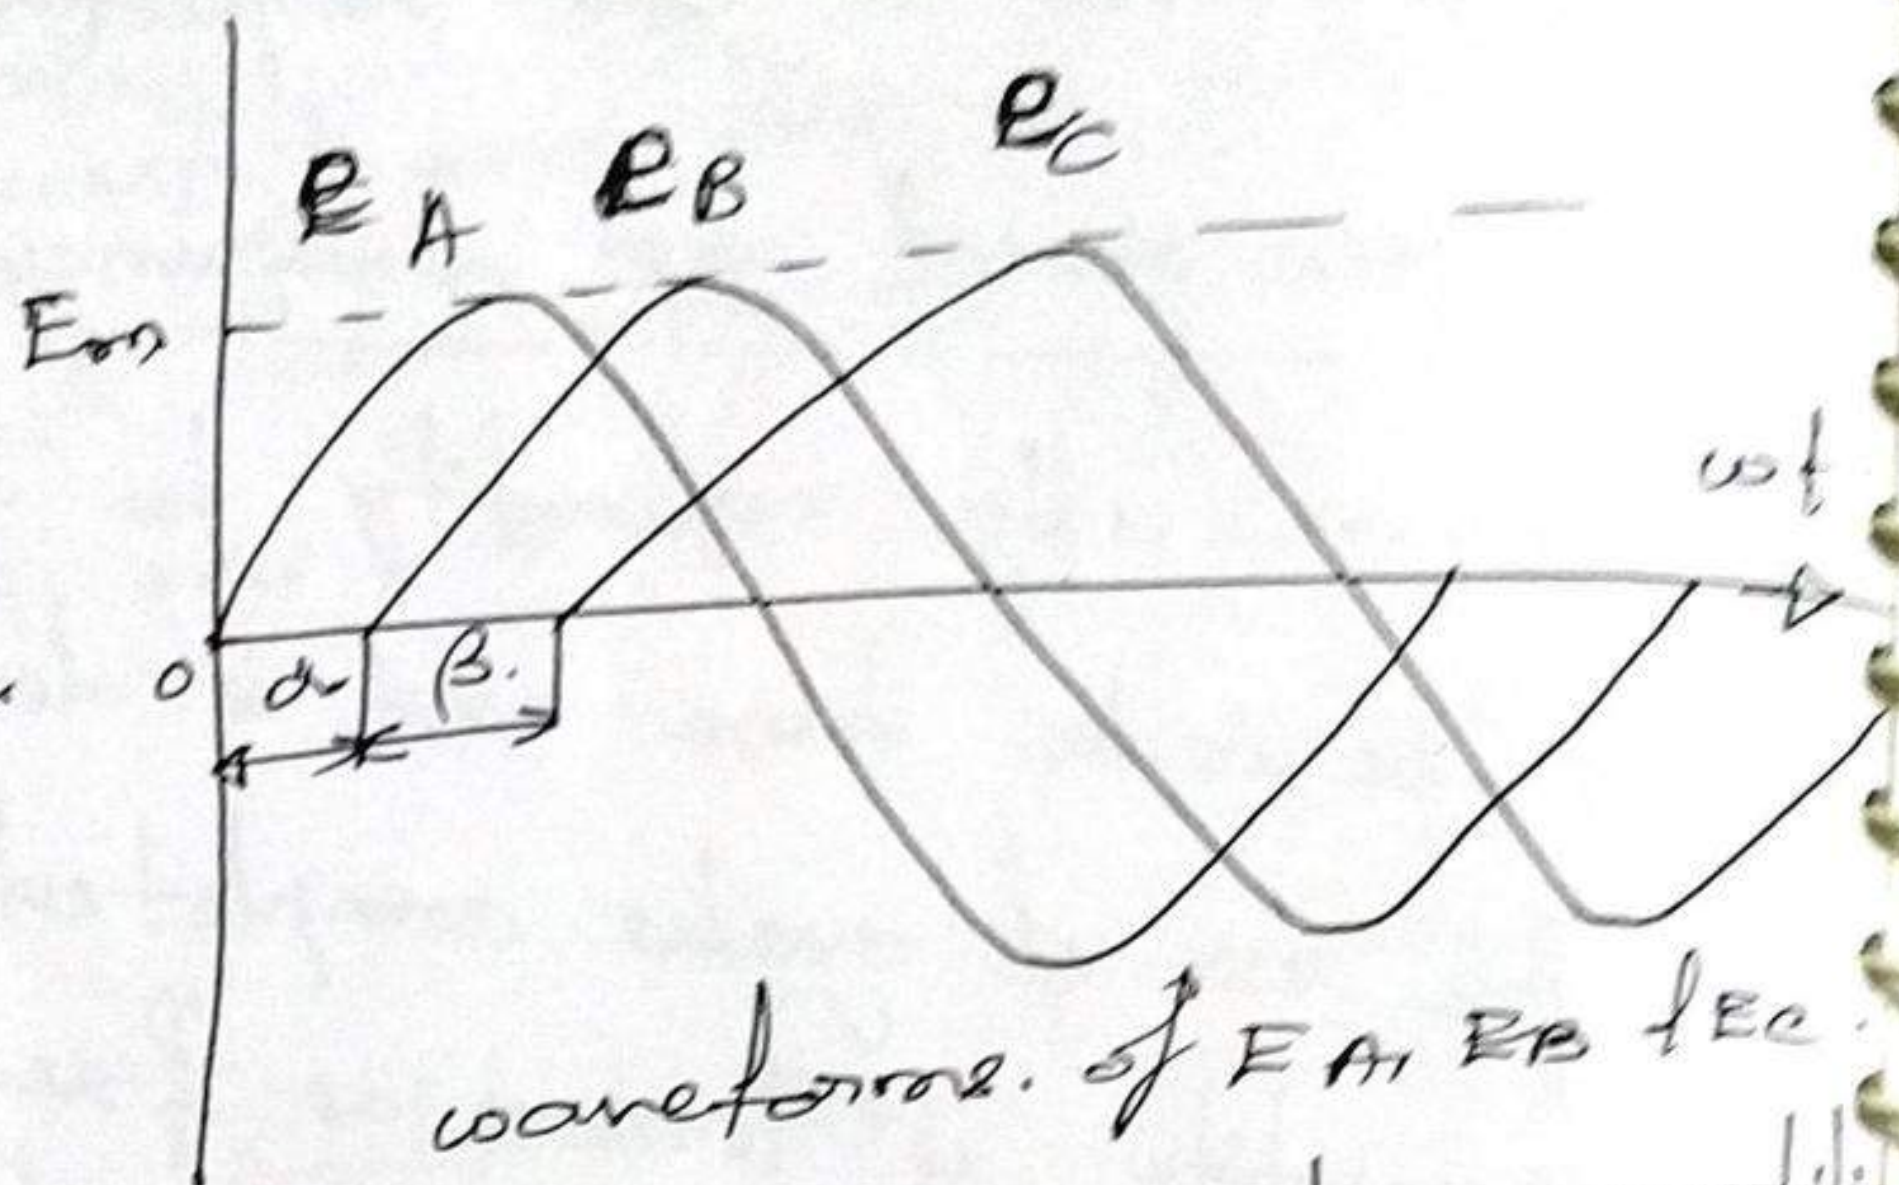 e_A e_B e_C
Em
ωt
0 α β.
waveforms. of EA, EB & EC.